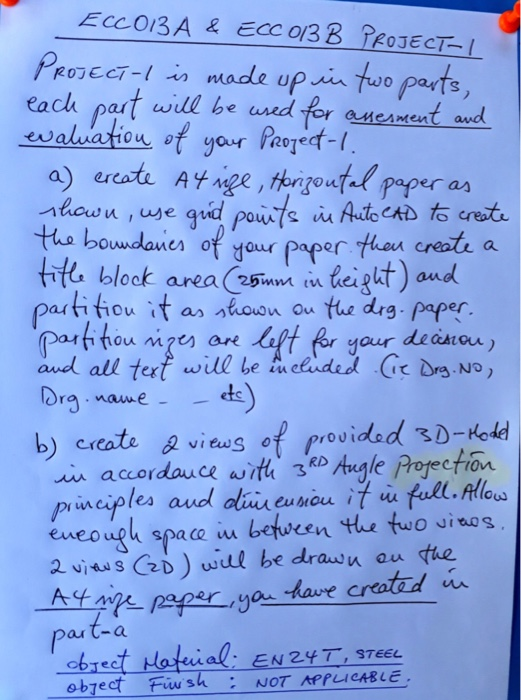 ECC013A & ECC013B PROJECT-1
PROJECT-1 is made up in two parts,
each part will be used for assesment and
evaluation of your Project-1.
a) create A4 size, Horizontal paper as
shown, use grid points in AutoCAD to create
the boundaries of your paper. then create a
title block area (25mm in height) and
partition it as shown on the drg. paper.
partition sizes are left for your decision,
and all text will be included. (ie Drg. No,
Drg. name - - etc)
b) create 2 views of provided 3D-Model
in accordance with 3RD Angle Projection
principles and dimension it in full. Allow
eneough space in between the two views.
2 views (2D) will be drawn on the
A4 size paper, you have created in
part-a
object Material: EN24T, STEEL
object Finish : NOT APPLICABLE.